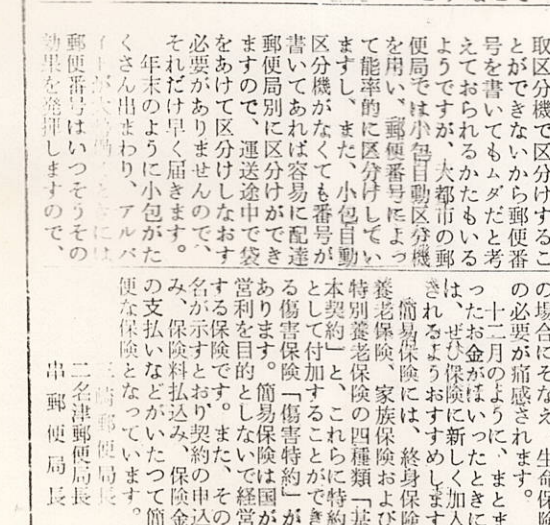 取区分機で区分けするこ
とができないから郵便番
号を書いてもムダだと考
えておられるかたもいる
ようですが、大都市の郵
便局では小包自動区分機
を用い、郵便番号によっ
て能率的に区分けしてい
ますし、また、小包自動
区分機がなくても番号が
書いてあれば容易に配達
郵便局別に区分けができ
ますので、運送途中で袋
をあけて区分けしなおす
必要がありませんので、
それだけ早く届きます。
年末のように小包がた
くさん出まわり、アルバ
イトが大勢働くときには
郵便番号はいつそうその
効果を発揮しますので、
の場合にそなえ、生命保険
の必要が痛感されます。
十二月のように、まとま
ったお金がはいったときに
は、ぜひ保険に新しく加入
されるようおすすめします
簡易保険には、終身保険
養老保険、家族保険および
特別養老保険の四種類「基
本契約」と、これらに特約
として付加することができ
る傷害保険「傷害特約」が
あります。簡易保険は国が
営利を目的としないで経営
する保険です。また、その
名が示すとおり契約の申込
み、保険料払込み、保険金
の支払いなどがいたつて簡
便な保険となっています。
三崎郵便局長
二名津郵便局長
串郵便局長